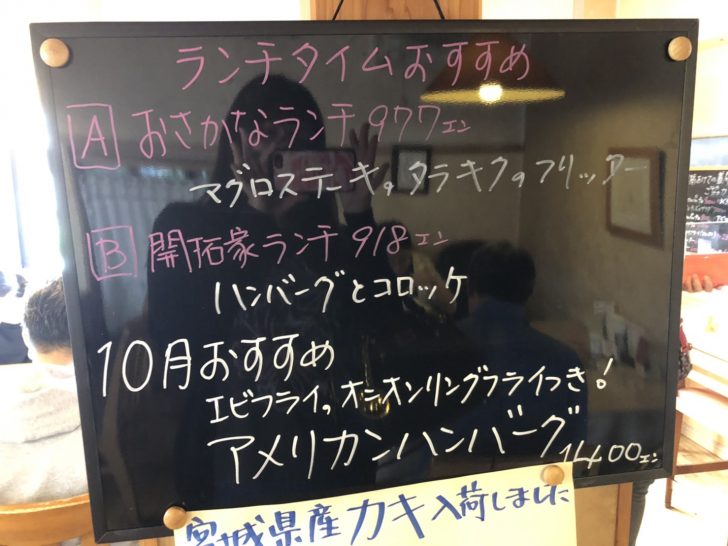 ランチタイムおすすめ
A おさかなランチ 977エン
マグロステーキ。タラキクのフリッター
B 開拓家ランチ 918エン
ハンバーグとコロッケ
10月おすすめ
エビフライ。オニオンリングフライつき!
アメリカンハンバーグ 1400エン
宮城県産カキ入荷しました